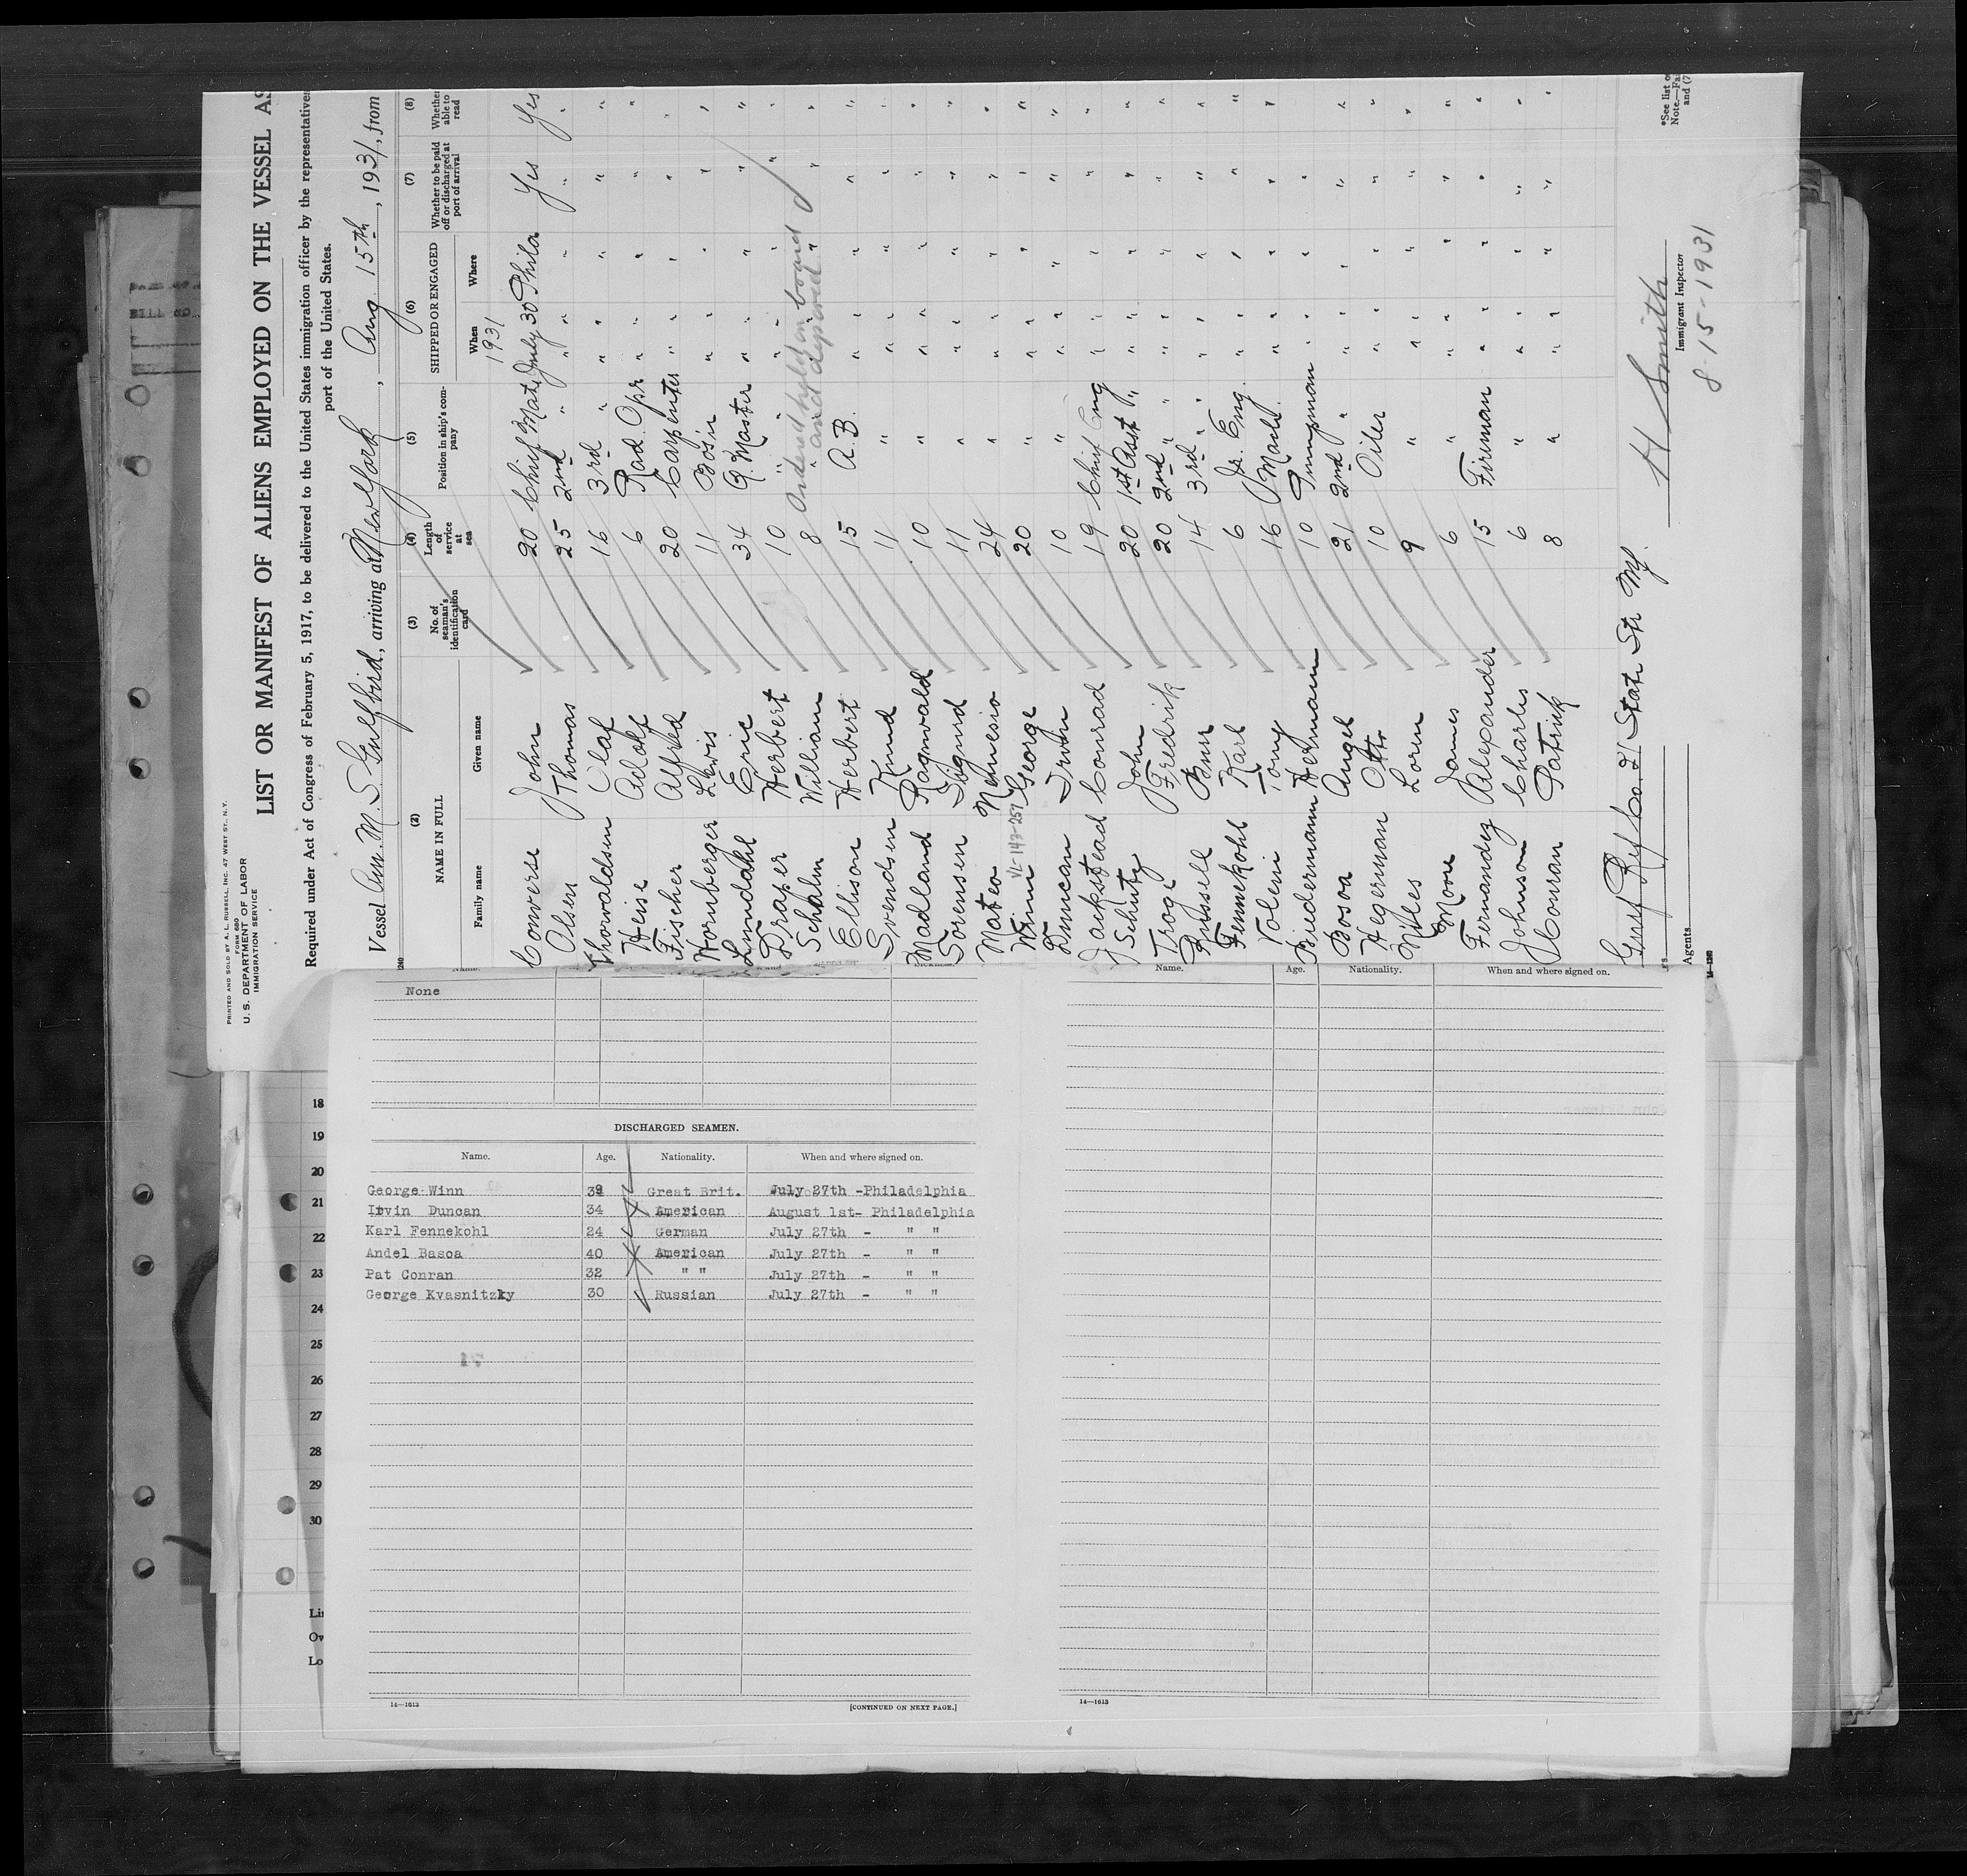 PRINTED AND SOLD BY A. L. RUSSELL, INC. 47 WEST ST., N.Y.
FORM 680
U. S. DEPARTMENT OF LABOR
IMMIGRATION SERVICE
LIST OR MANIFEST OF ALIENS EMPLOYED ON THE VESSEL AS
Required under Act of Congress of February 5, 1917, to be delivered to the United States immigration officer by the representatives
port of the United States.
Vessel Am. M. S Gulfbird, arriving at New York, Aug 15th, 1931, from
(2) (3) (4) (5) (6) (7) (8)
NAME IN FULL
Family name Given name
No. of seaman's identification card
Length of service at sea
Position in ship's company
SHIPPED OR ENGAGED
When Where
Whether to be paid off or discharged at port of arrival
Whether able to read
1931
Converse John 20 Chief Mate July 30 Phila Yes Yes
Olsen Thomas 25 2nd " " " " " "
Thorwaldsen Olaf 16 3rd " " " " " "
Heise Adolf 6 Rad. Opr " " " " "
Fischer Alfred 20 Carpenter " " " " "
Hornberger Lewis 11 Bos'n " " " " "
Lundahl Eric 34 Q. Master " " " " "
Draper Herbert 10 " " " " " "
Schalm William 8 " " " " " "
Ordered held on board
and deported
Ellison Herbert 15 A.B. " " " " "
Svendsen Knud 11 " " " " " "
Madland Ragnvald 10 " " " " " "
Sorensen Sigurd 11 " " " " " "
Mateo 24 " " " " " "
Winn George 20 " " " " " "
Duncan Irvin 10 " " " " " "
Jackstead Conrad 19 Chief Eng " " " " "
Schutz John 20 1st Asst " " " " " "
Trog Fredrik 20 2nd " " " " " "
Russell Burr 14 3rd " " " " " "
Fennekohl Karl 6 Jr. Eng. " " " " "
Tony 16 " " " " "
Biedermann Hermann 10 Pumpman " " " " "
Bosoa Angel 21 2nd " " " " " "
Hegerman Otto 10 Oiler " " " " "
Miles Loren 9 " " " " " "
Moore James 6 " " " " " "
Fernandez Alexander 15 Fireman " " " " "
Johnson Charles 6 " " " " " "
Conran Patrick 8 " " " " " "
Gulf Ref Co. 21 State Str NY.
Agents
H Smith
Immigrant Inspector
8-15-1931
*See list o
Note.—Fa
and (7
None
DISCHARGED SEAMEN.
Name. Age. Nationality. When and where signed on.
George Winn 39 Great Brit. July 27th -Philadelphia
Irvin Duncan 34 American August 1st- Philadelphia
Karl Fennekohl 24 German July 27th - " "
Andel Basoa 40 American July 27th - " "
Pat Conran 32 " " July 27th - " "
George Kvasnitzky 30 Russian July 27th - " "
14—1613
[CONTINUED ON NEXT PAGE.]
Name. Age. Nationality. When and where signed on.
14—1613
18
19
20
21
22
23
24
25
26
27
28
29
30
Li
Ov
Lo